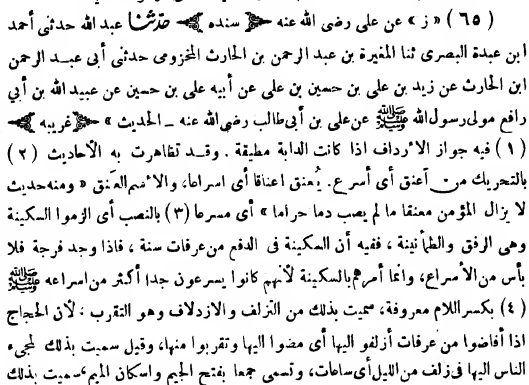 ( ٦٥ ) « ز » عن على رضى الله عنه ﴿ سنده ﴾ حدثنا عبد الله حدثنى أحمد
ابن عبدة البصرى ثنا المغيرة بن عبد الرحمن بن الحارث المخزومى حدثنى أبى عبد الرحمن
ابن الحارث عن زيد بن على بن حسين بن على عن أبيه على بن حسين عن عبيد الله بن أبي
رافع مولى رسول الله ﷺ عن على بن أبى طالب رضى الله عنه ـ الحديث » ﴿ غريبه ﴾
( ١ ) فيه جواز الارداف اذا كانت الدابة مطيقة . وقد تظاهرت به الأحاديث ( ٢ )
بالتحريك من أعنق أى أسرع . يُعنق اعناقا أى اسراعا، والاسم العنَق « ومنه حديث
لا يزال المؤمن معنقا ما لم يصب دما حراما » أى مسرعا (٣) بالنصب أى الزموا السكينة
وهى الرفق والطمأنينة ، ففيه أن السكينة فى الدفع من عرفات سنة ، فاذا وجد فرجة فلا
بأس من الأسراع، وانما أمرهم بالسكينة لأنهم كانوا يسرعون جدا أكثر من اسراعه ﷺ
( ٤ ) بكسر اللام معروفة، سميت بذلك من التزلف والازدلاف وهو التقرب ، لأن الحجاج
اذا أفاضوا من عرفات أزلفو اليها أى مضوا اليها وتقربوا منها، وقيل سميت بذلك لمجىء
الناس اليها فى زلف من الليل أى ساعات، وتسمى جمعا بفتح الجيم واسكان الميم، سميت بذلك